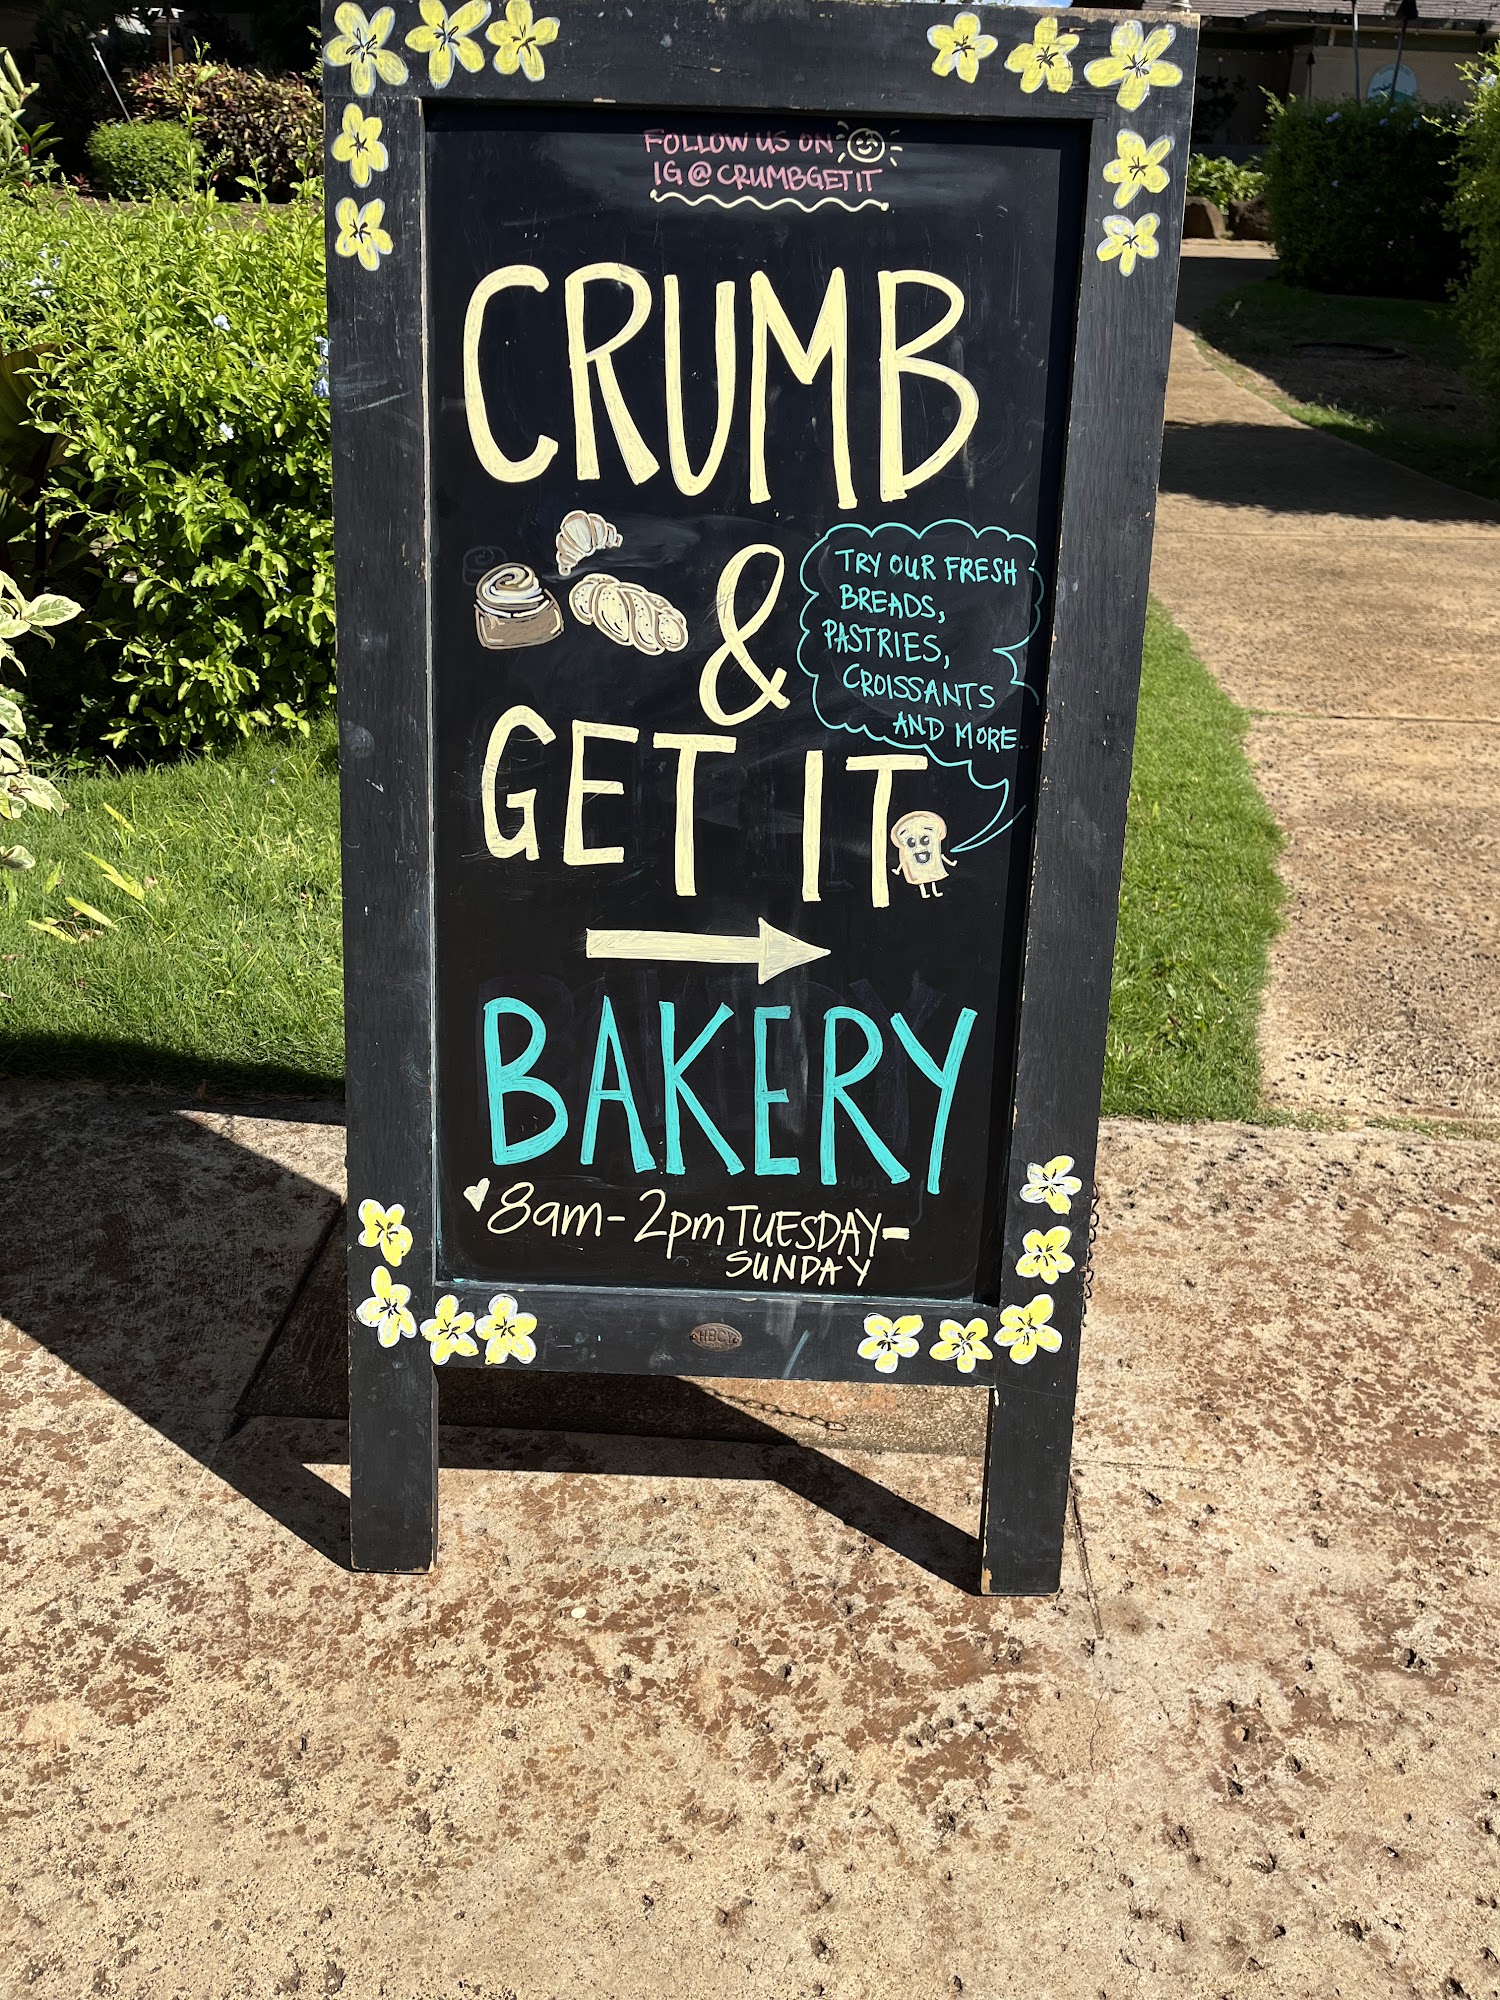 FOLLOW US ON
IG @ CRUMBGETIT
CRUMB
&
TRY OUR FRESH
BREADS,
PASTRIES,
CROISSANTS
AND MORE
GET IT
BAKERY
8am - 2pm TUESDAY -
SUNDAY
HBCY